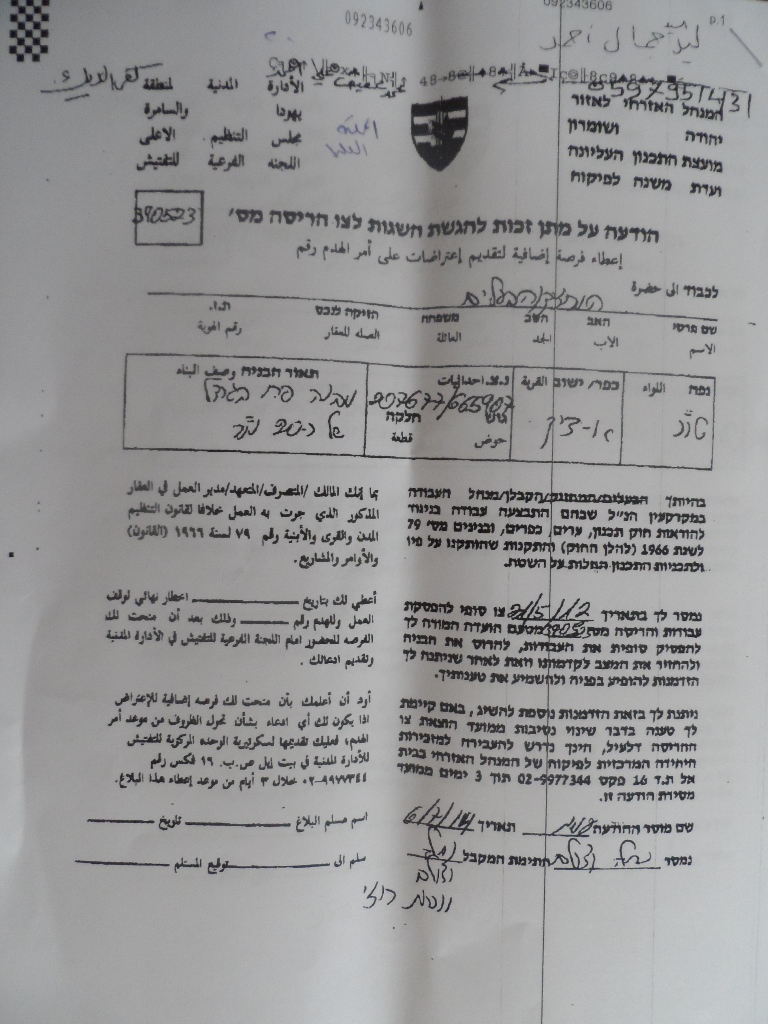 092343606
092343606
p.1
ليد جمال احمد
0597951431
הַמנהל האזרחי לאזור
יהודה ושומרון
מועצת התכנון העליונה
ועדת משנה לפיקוח
الأدارة المدنية لمنطقة
يهودا والسامرة
مجلس التنظيم الاعلى
اللجنه الفرعية للتفتيش
הודעה על מתן זכות להגשת השגות לצו הריסה מס'
390523
إعطاء فرصة إضافية لتقديم إعتراضات على أمر الهدم رقم
לכבוד الى حضرة
שם פרטי האב הסב משפחה הזיקה לנכס ת.ז.
الاسم الاب الجد العائلة الصله للعقار رقم الهوية
נפה اللواء
כפר/ ישוב القرية
נ.צ. احداثيات
207677/665907
גוש חלקה
حوض قطعة
תאור הבניה وصف البناء
מבנה פח בגודל
של כ-20 מ"ר
בהיותך הבעלים/המחזיק/הקבלן/מנהל העבודה
במקרקעין הנ"ל שבהם התבצעה עבודה בניגוד
להוראות חוק תכנון, ערים, כפרים, ובנינים מס' 79
לשנת 1966 (להלן החוק) והתקנות שהותקנו על פיו
ולתכניות התכנון החלות על השטח.
بما إنك المالك /المتصرف/المتعهد/مدير العمل في العقار
المذكور الذي جرت به العمل خلافا لقانون التنظيم
المدن والقرى والأبنية رقم ٧٩ لسنة ١٩٦٦ (القانون)
والأوامر والمشاريع.
נמסר לך בתאריך 21/5/12 צו סופי להפסקת
עבודות והריסה מס' מטעם הועדה המורה לך
להפסיק סופית את העבודות, להרוס את הבניה
ולהחזיר את המצב לקדמותו וזאת לאחר שניתנה לך
הזדמנות להופיע בפניה ולהשמיע את טענותיך.
أعطي لك بتاريخ اخطار نهائي لوقف
العمل وللهدم رقم وذلك بعد أن منحت لك
الفرصه للحضور امام اللجنة الفرعية للتفتيش في الأدارة المدنية
وتقديم ادعائك.
ניתנת לך בזאת הזדמנות נוספת להשיג, באם קיימת
לך טענה בדבר שינוי נסיבות ממועד הוצאת צו
ההריסה דלעיל, הינך נדרש להעבירה למזכירות
היחידה המרכזית לפיקוח של המנהל האזרחי בבית
אל ת.ד 16 פקס 02-9977344 תוך 3 ימים ממועד
מסירת הודעה זו.
أود أن أعلمك بأن منحت لك فرصه إضافية للإعتراض
اذا يكون لك أي ادعاء بشأن تحول الظروف من موعد أمر
الهدم، فعليك تقديمها لسكرتيرية الوحده المركزية للتفتيش
للأدارة المدنية في بيت إيل ص.ب. ١٦ فكس رقم
٠٢-٩٩٧٧٣٤٤ خلال ٣ أيام من موعد إعطاء هذا البلاغ.
שם מוסר ההודעה תאריך 6/7/14
اسم مسلم البلاغ تاريخ
נמסר חתימת המקבל
سلم الى توقيع المستلم